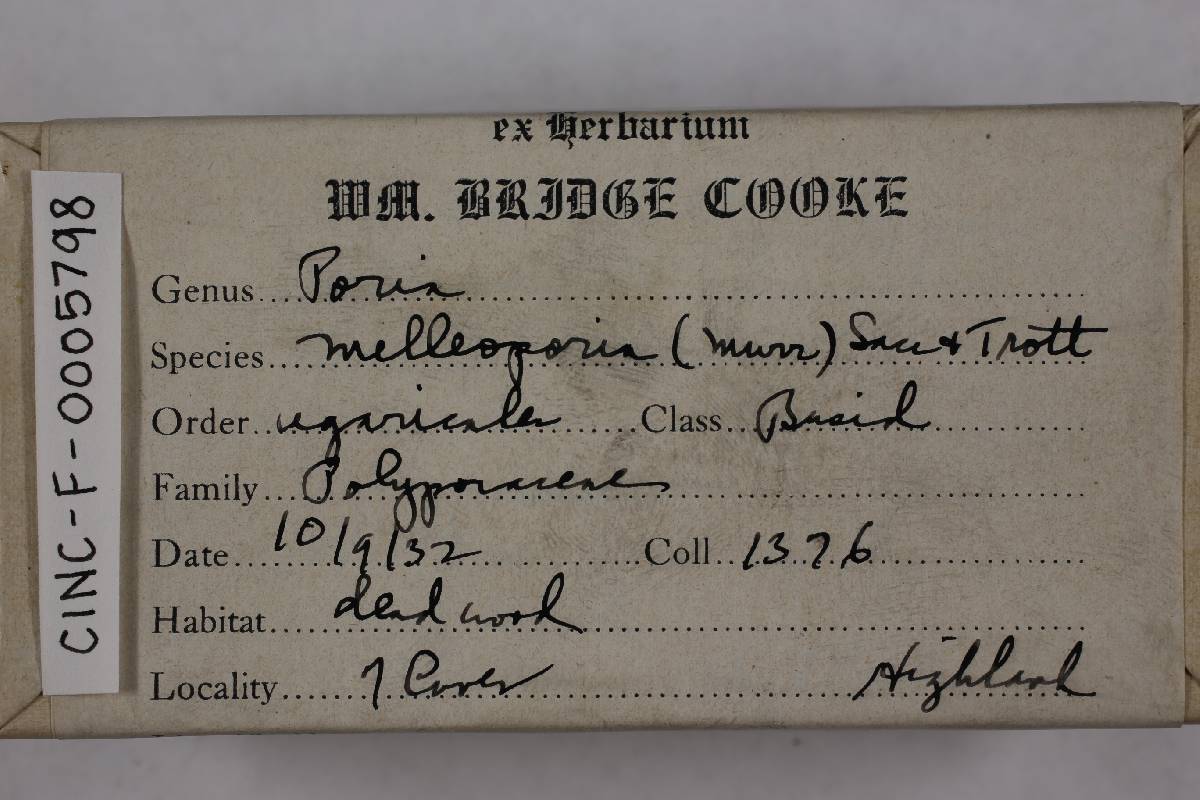 ex Herbarium
WM. BRIDGE COOKE
Genus Poria
Species melleoporia (Murr) Sacc & Trott
Order agaricales Class Basid
Family Polyporaceae
Date 10/9/32 Coll 1376
Habitat dead wood
Locality 7 Caves Highland
CINC-F-0005798